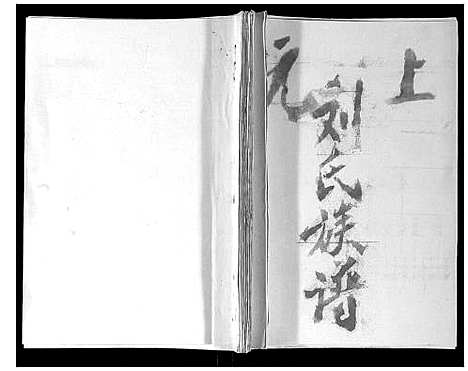 上
刘氏族谱
元